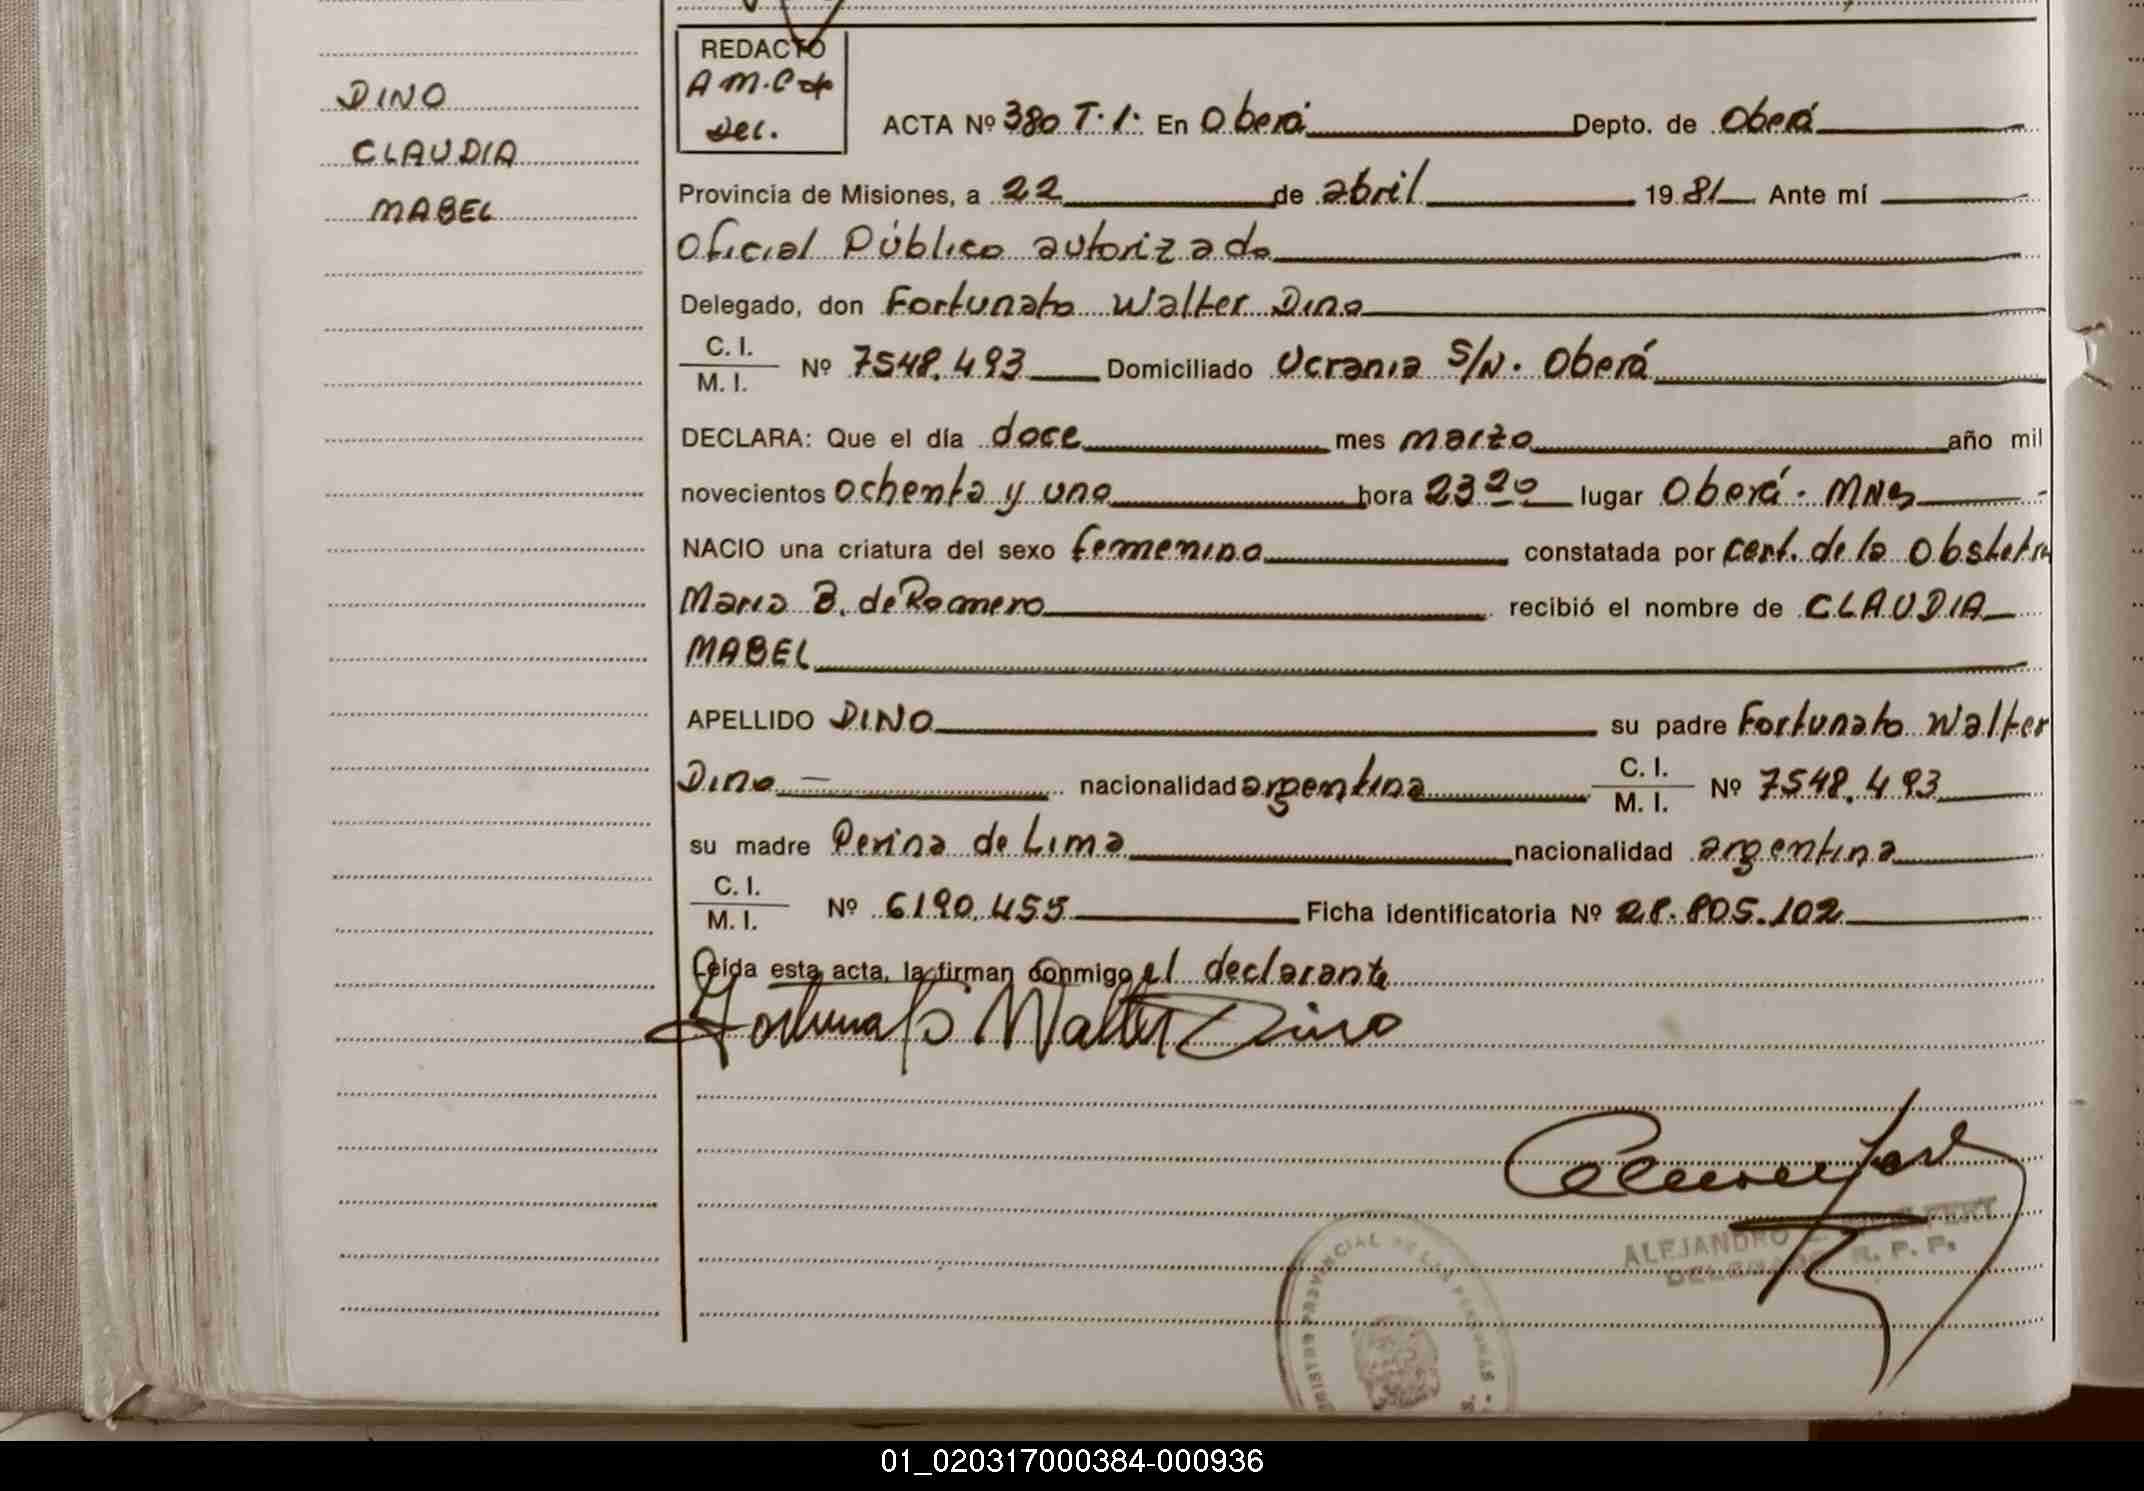 DINO
CLAUDIA
MABEL
REDACTO
A M.C de
Del.
ACTA Nº 380 T.I. En Oberá Depto. de Oberá
Provincia de Misiones, a 22 de abril 1981 Ante mí
Oficial Público autorizado
Delegado, don Fortunato Walter Dino
C. I.
M. I. Nº 7548.493 Domiciliado Ucrania S/N. Oberá
DECLARA: Que el día doce mes marzo año mil
novecientos ochenta y uno hora 23 20 lugar Oberá - MNS
NACIO una criatura del sexo femenino constatada por cert. de la Obstetra
Maria B. de Romero recibió el nombre de CLAUDIA
MABEL
APELLIDO DINO su padre Fortunato Walter
Dino nacionalidad argentina C. I.
M. I. Nº 7548.493
su madre Perina de Lima nacionalidad argentina
C. I.
M. I. Nº 6190.455 Ficha identificatoria Nº 28.805.102
Leída esta acta, la firman conmigo el declarante
Fortunato Walter Dino
ALEJANDRO
R. P. P.
PROVINCIAL DE LAS PERSONAS
01_020317000384-000936